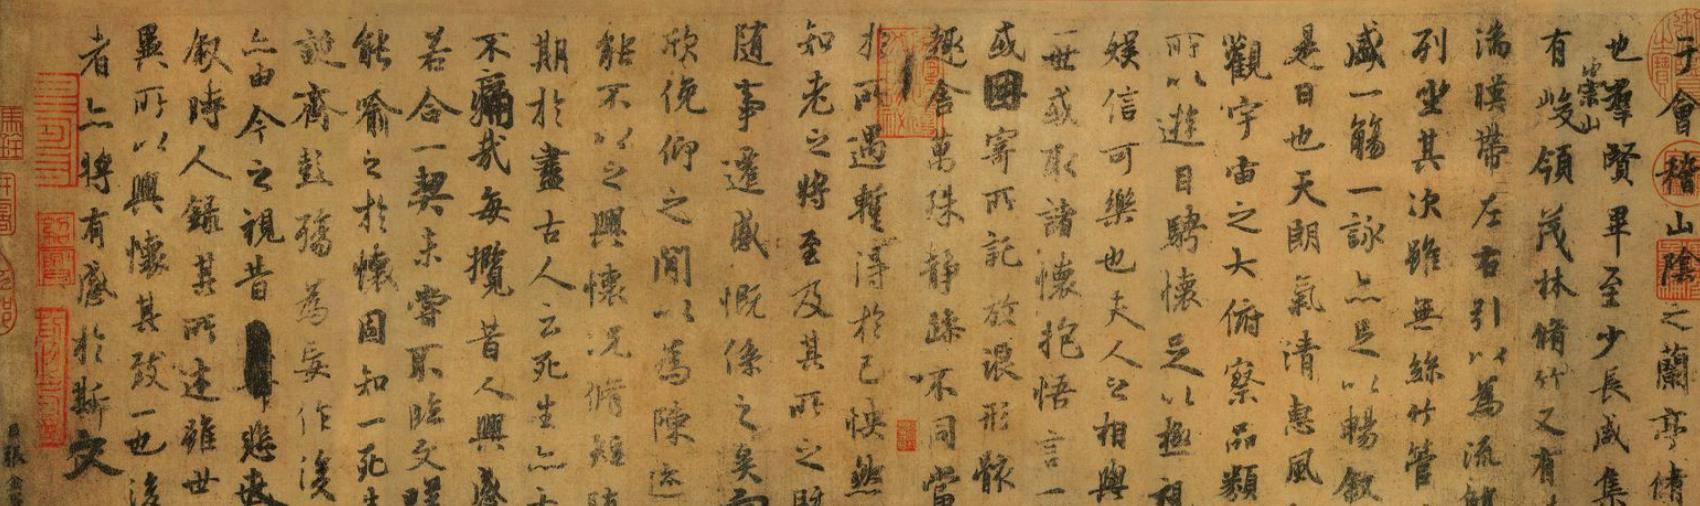 于會稽山陰之蘭亭脩
也羣賢畢至少長咸集
崇山
有峻領茂林脩竹又有
湍暎帶左右引以為流觴
列坐其次雖無絲竹管
盛一觴一詠亦足以暢叙
是日也天朗氣清惠風
觀宇宙之大俯察品類
所以遊目騁懷足以極視
娛信可樂也夫人之相與
一世或取諸懷抱悟言一
或因寄所託放浪形骸
趣舍萬殊靜躁不同當
於所遇暫得於己怏然
知老之將至及其所之既
隨事遷感慨係之矣向
欣俛仰之閒以為陳迹
能不以之興懷況脩短隨
期於盡古人云死生亦
不痛哉每攬昔人興感
若合一契未嘗不臨文嗟
能喻之於懷固知一死生
誕齊彭殤為妄作後
亦由今之視昔悲夫
叙時人錄其所述雖世
異所以興懷其致一也後
者亦將有感於斯文